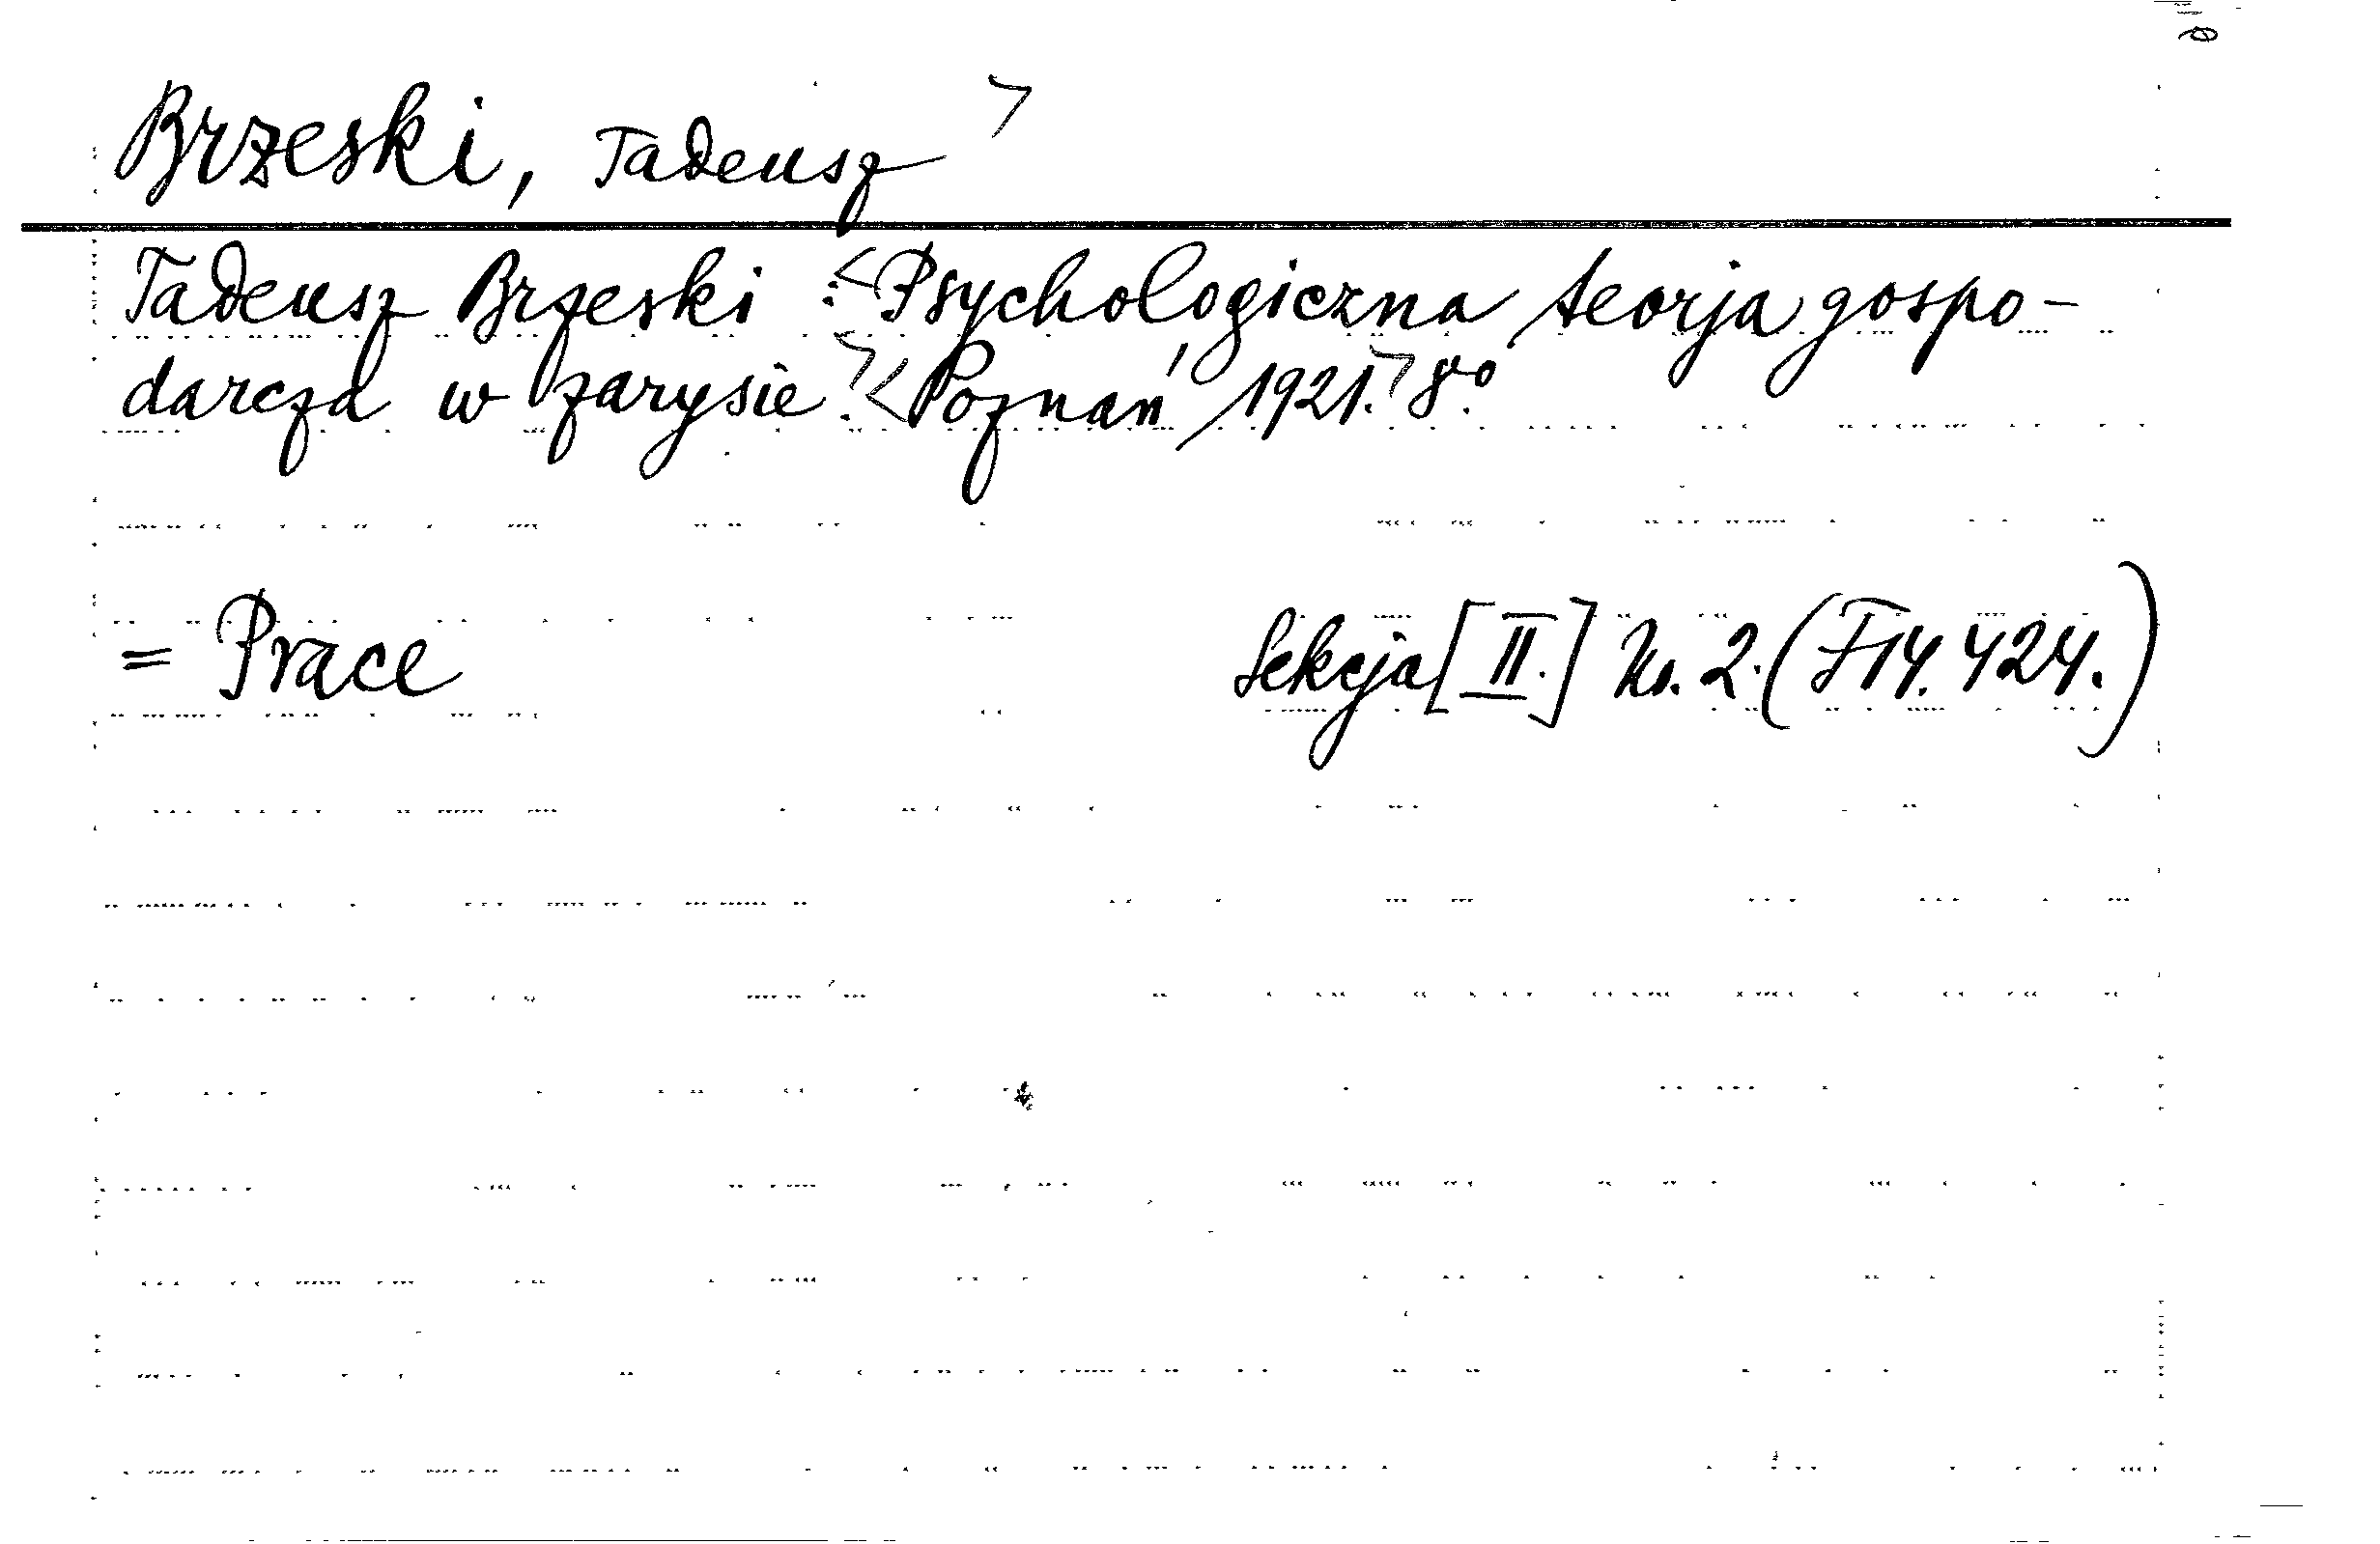 Brzeski, Tadeusz >
Tadeusz Brzeski : <Psychologiczna teorja gospo-
darcza w zarysie.> <Poznań 1921.> 8vo.
= Prace Sekcja [II.] Nr. 2. (F 14. 424.)